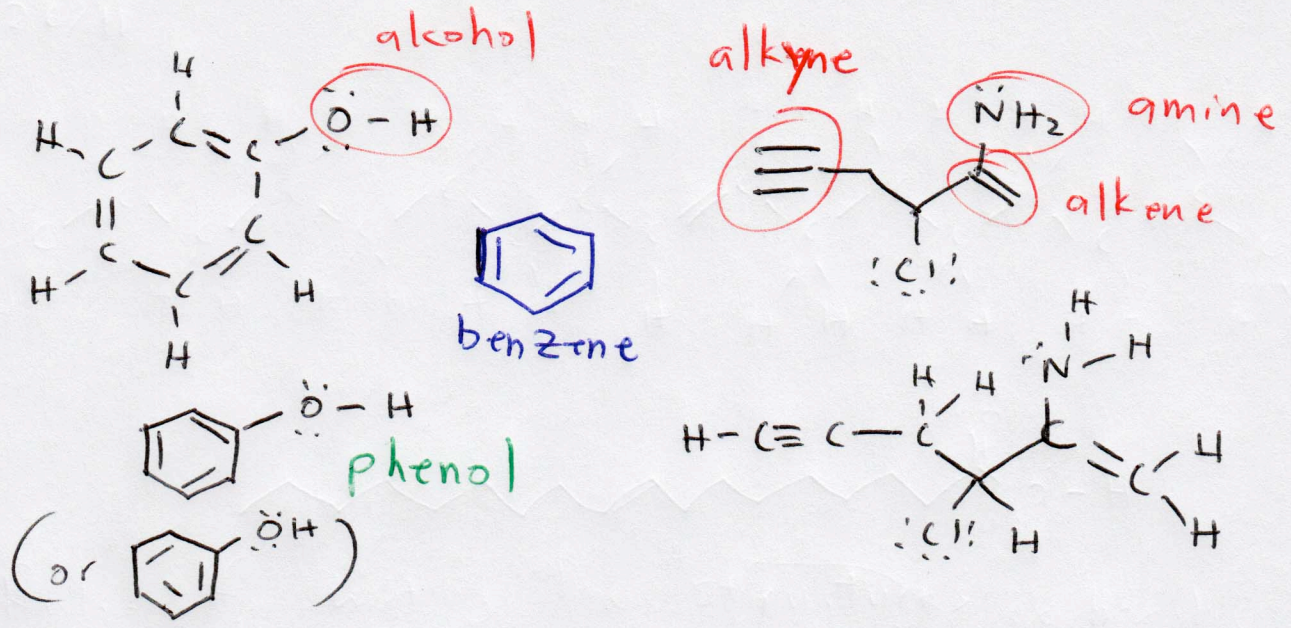 alcohol
H
H
C
C
C
O - H
C
C
C
H
H
H
benzene
O - H
phenol
(or OH)
alkyne
NH2
amine
alkene
Cl
H
H
N
H
H
H - C ≡ C - C
C
C
H
H
Cl
H